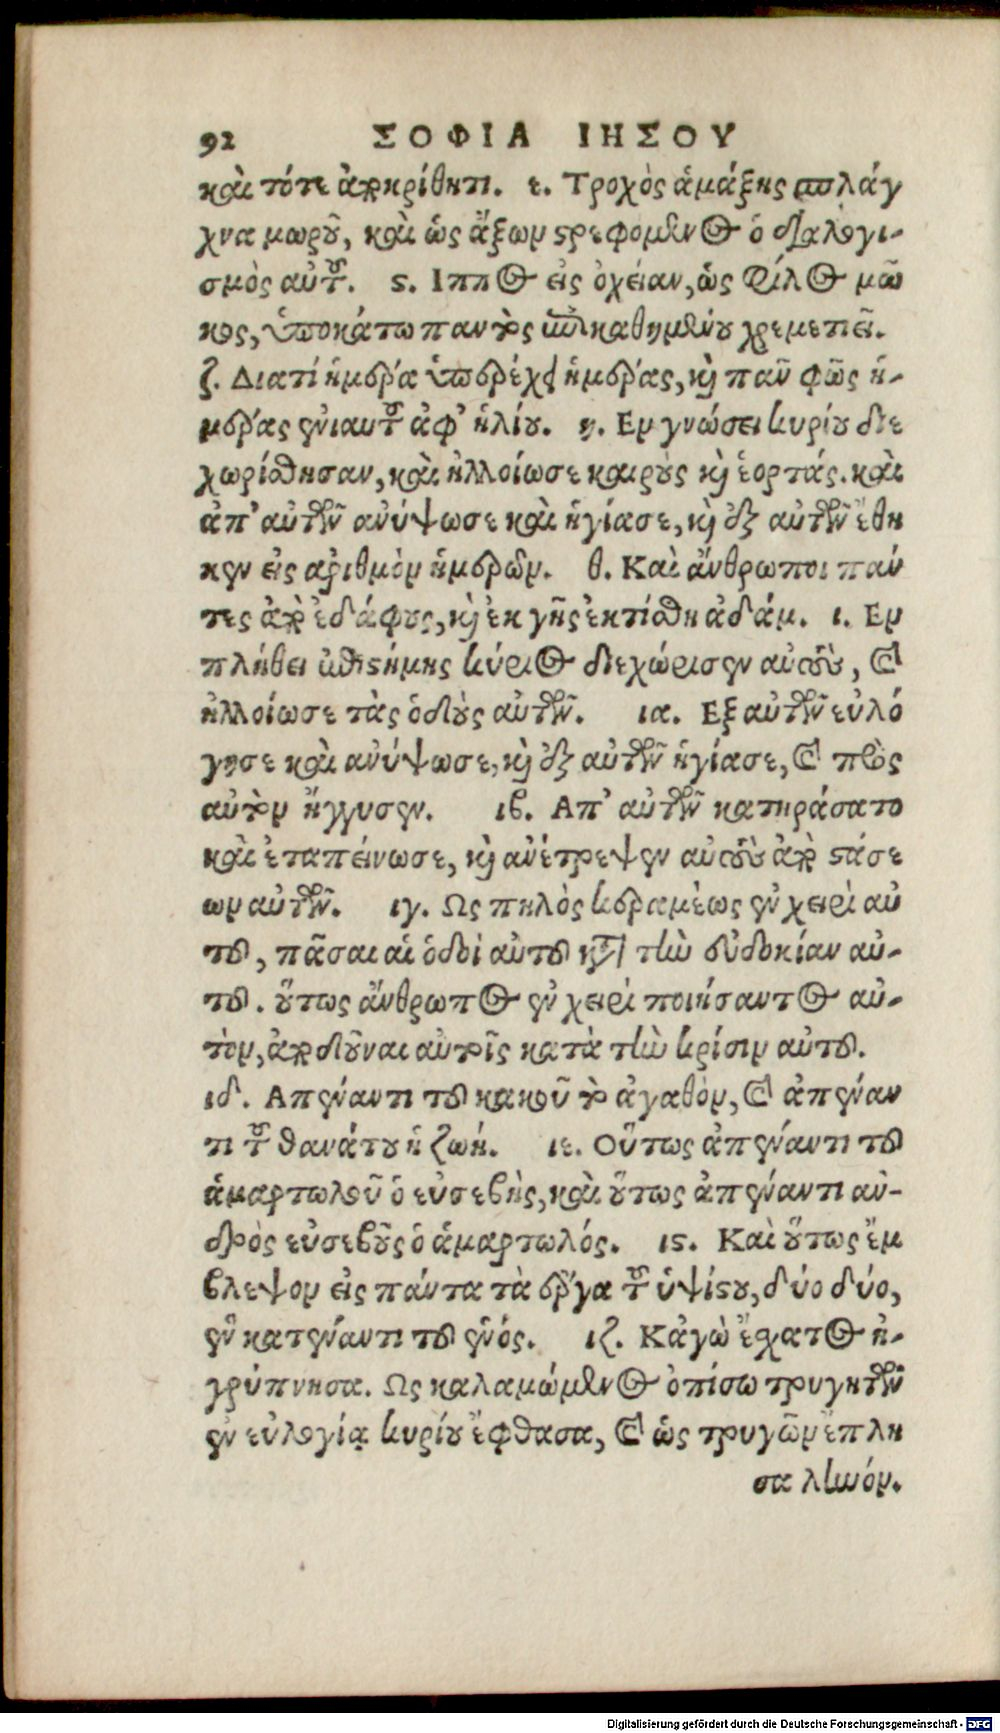 92 ΣΟΦΙΑ ΙΗΣΟΥ
καὶ τότε ἀποκρίθητι. ε. Τροχὸς ἁμάξης σπλάγ
χνα μωροῦ, καὶ ὡς ἄξων στρεφόμενος ὁ διαλογι-
σμὸς αὐτοῦ. ϛ. Ιππος εἰς ὀχείαν, ὡς φίλος μῶ
κος, ὑποκάτω παντὸς ἐπικαθημένου χρεμετιεῖ.
ζ. Διατί ἡμέρα ἡμέρας ὑπερέχει, καὶ πᾶν φῶς ἡ-
μέρας ἐνιαυτοῦ ἀφ' ἡλίου. η. Εν γνώσει κυρίου διε
χωρίσθησαν, καὶ ἠλλοίωσε καιροὺς καὶ ἑορτάς. καὶ
ἀπ' αὐτῶν ἀνύψωσε καὶ ἡγίασε, καὶ ἐξ αὐτῶν ἔθη
κεν εἰς ἀριθμὸν ἡμερῶν. θ. Καὶ ἄνθρωποι πάν
τες ἀπὸ ἐδάφους, καὶ ἐκ γῆς ἐκτίσθη ἀδάμ. ι. Εν
πλήθει ἐπιστήμης κύριος διεχώρισεν αὐτοὺς, καὶ
ἠλλοίωσε τὰς ὁδοὺς αὐτῶν. ια. Εξ αὐτῶν εὐλό
γησε καὶ ἀνύψωσε, καὶ ἐξ αὐτῶν ἡγίασε, καὶ πρὸς
αὐτὸν ἤγγυσεν. ιβ. Απ' αὐτῶν κατηράσατο
καὶ ἐταπείνωσε, καὶ ἀνέτρεψεν αὐτοὺς ἀπὸ στάσε
ων αὐτῶν. ιγ. Ως πηλὸς κεραμέως ἐν χειρὶ αὐ
τοῦ, πᾶσαι αἱ ὁδοὶ αὐτοῦ κατὰ τὴν εὐδοκίαν αὐ-
τοῦ. οὕτως ἄνθρωπος ἐν χειρὶ ποιήσαντος αὐ-
τὸν, ἀποδοῦναι αὐτοῖς κατὰ τὴν κρίσιν αὐτοῦ.
ιδ. Απέναντι τοῦ κακοῦ τὸ ἀγαθὸν, καὶ ἀπέναν
τι τοῦ θανάτου ἡ ζωή. ιε. Οὕτως ἀπέναντι τοῦ
ἁμαρτωλοῦ ὁ εὐσεβὴς, καὶ οὕτως ἀπέναντι ἀν-
δρὸς εὐσεβοῦς ὁ ἁμαρτωλός. ιϛ. Καὶ οὕτως ἔμ
βλεψον εἰς πάντα τὰ ἔργα τοῦ ὑψίστου, δύο δύο,
ἓν κατέναντι τοῦ ἑνός. ιζ. Κἀγὼ ἔσχατος ἠ-
γρύπνησα. Ως καλαμώμενος ὀπίσω τρυγητῶν
ἐν εὐλογίᾳ κυρίου ἔφθασα, καὶ ὡς τρυγῶν ἔπλη
σα ληνόν.
Digitalisierung gefördert durch die Deutsche Forschungsgemeinschaft - DFG